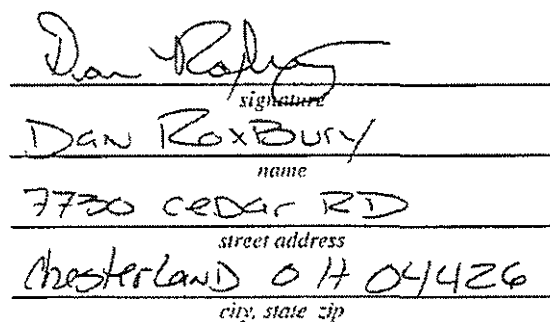 signature
Dan RoxBury
name
7730 ceDar RD
street address
ChesterLanD OH 04426
city, state zip